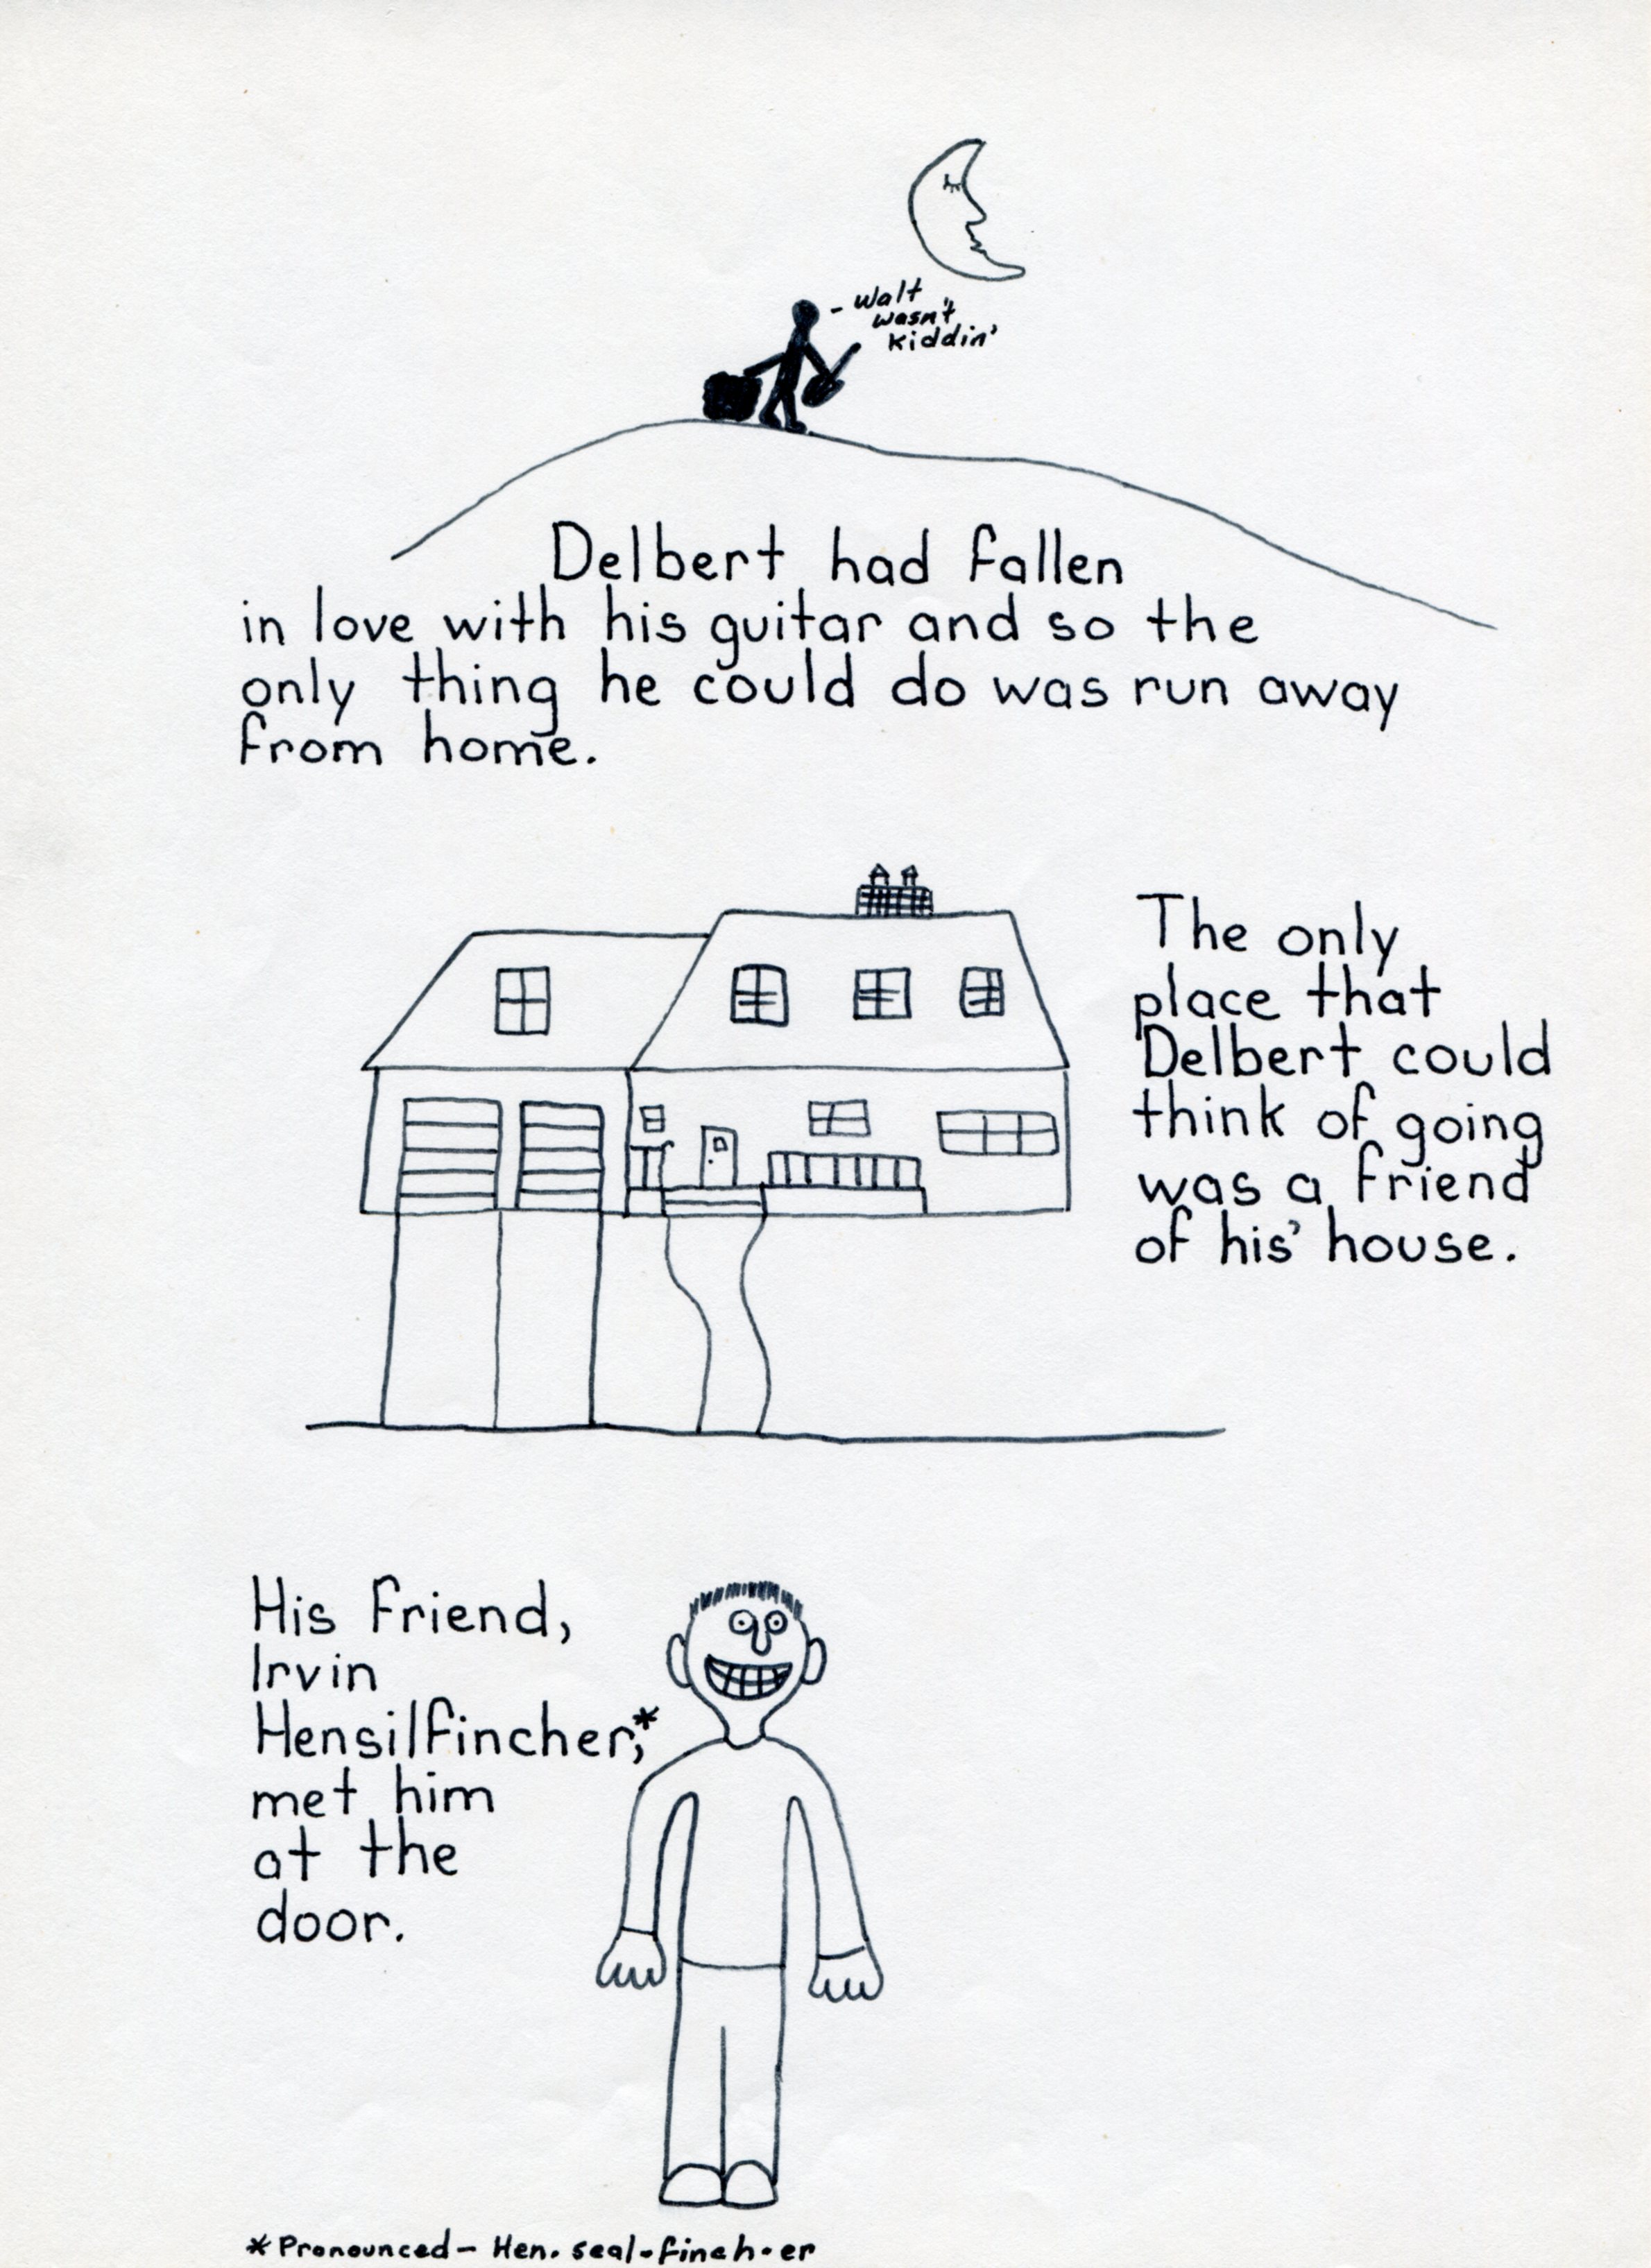 - Walt
wasn't
kiddin'
Delbert had fallen
in love with his guitar and so the
only thing he could do was run away
from home.
The only
place that
Delbert could
think of going
was a friend
of his' house.
His friend,
Irvin
Hensilfincher,*
met him
at the
door.
*Pronounced- Hen. seal-finch-er